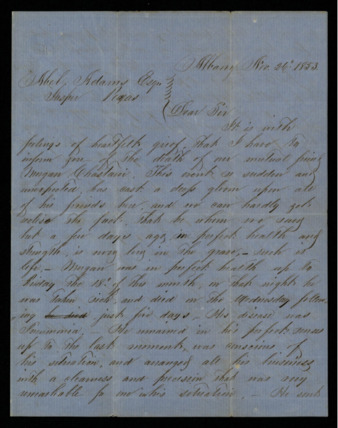 Albany Nov. 24th 1853
Abel Adams Esqr
Jasper Pegues
Dear Sir
It is with
feelings of heartfelt grief that I have to
inform you of the death of our mutual friend
Morgan Chastain. This event so sudden and
unexpected, has cast a deep gloom upon all
of his friends here, and we can hardly yet
realise the fact, that he whom we saw
but a few days ago, in perfect health and
strength, is now lying in the grave, - such is
life. - Morgan was in perfect health up to
Friday the 18th of this month, in that night he
was taken sick and died on the Wednesday follow
ing just five days - His disease was
Pneumonia. - He remained in his perfect mind
up to the last moments, was conscious of
his situation, and arranged all his business
with a clearness and precision that was very
remarkable for one in his situation. - He